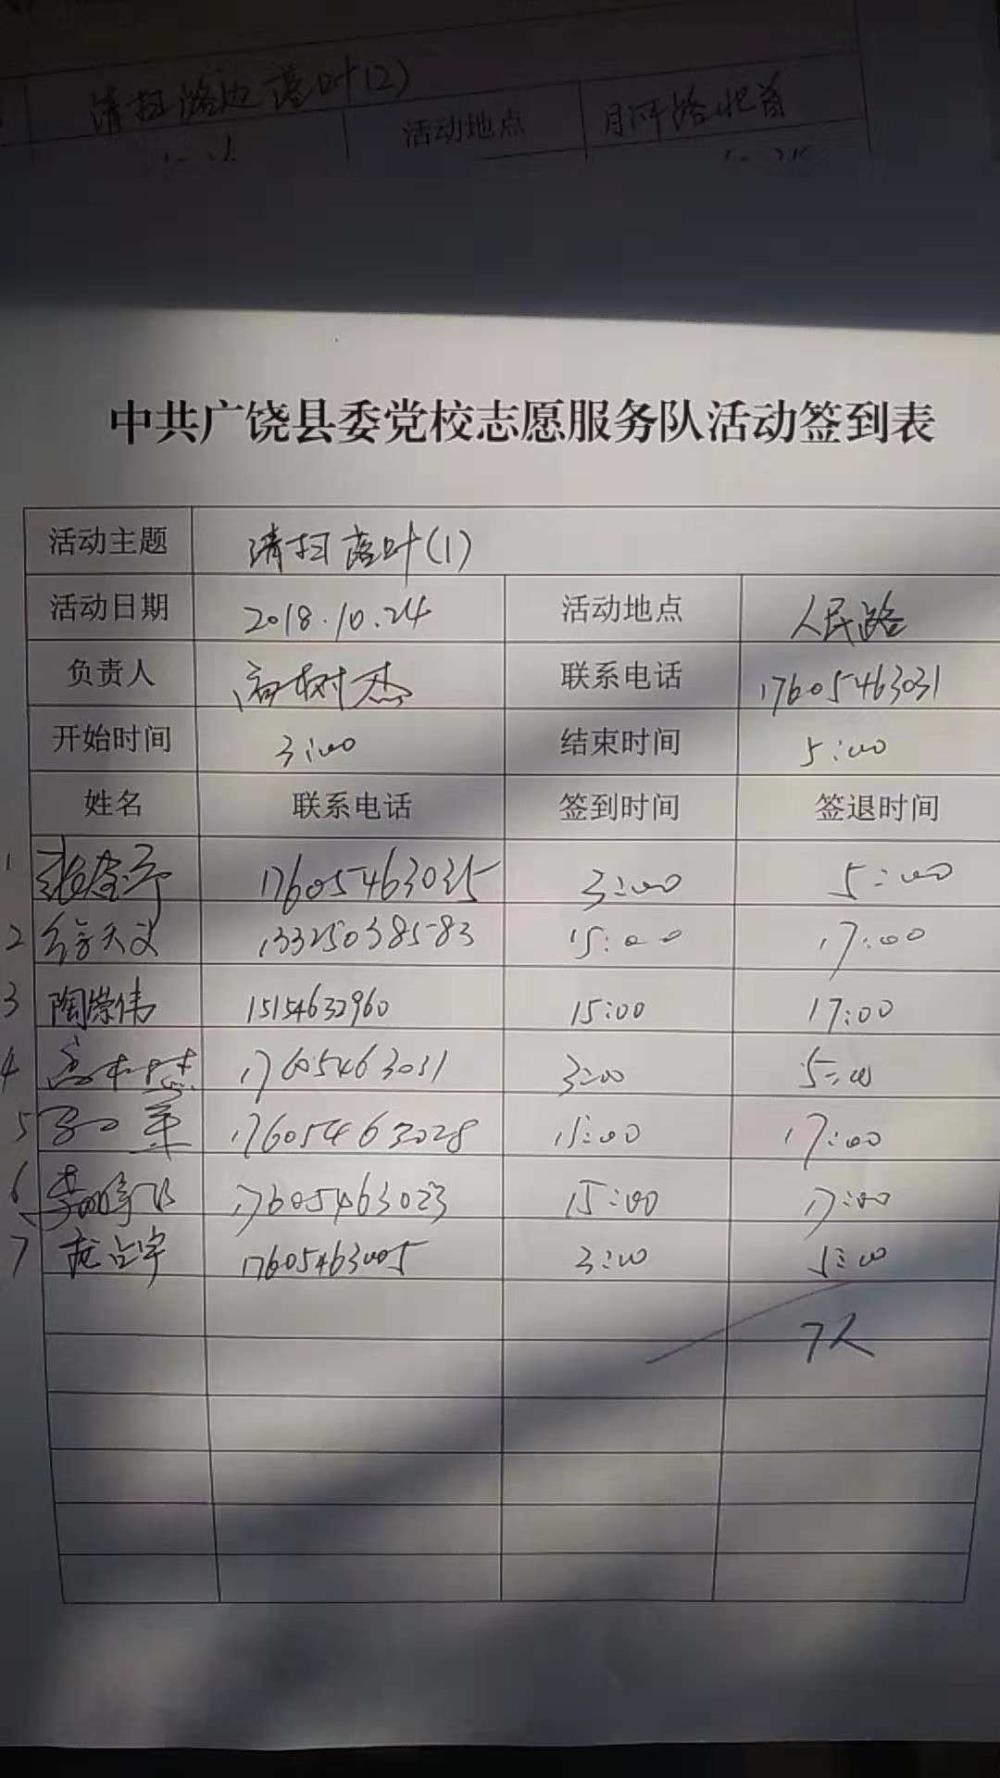 清扫路边落叶(2)
活动地点 月河路北首
中共广饶县委党校志愿服务队活动签到表
活动主题 清扫落叶(1)
活动日期 2018.10.24 活动地点 人民路
负责人 高树杰 联系电话 17605463031
开始时间 3:00 结束时间 5:00
姓名 联系电话 签到时间 签退时间
1 17605463035 3:00 5:00
2 13325038583 15:00 17:00
3 陶崇伟 15154632960 15:00 17:00
4 17605463031 3:00 5:00
5 17605463028 15:00 17:00
6 17605463023 15:00 17:00
7 17605463005 3:00 5:00
7人